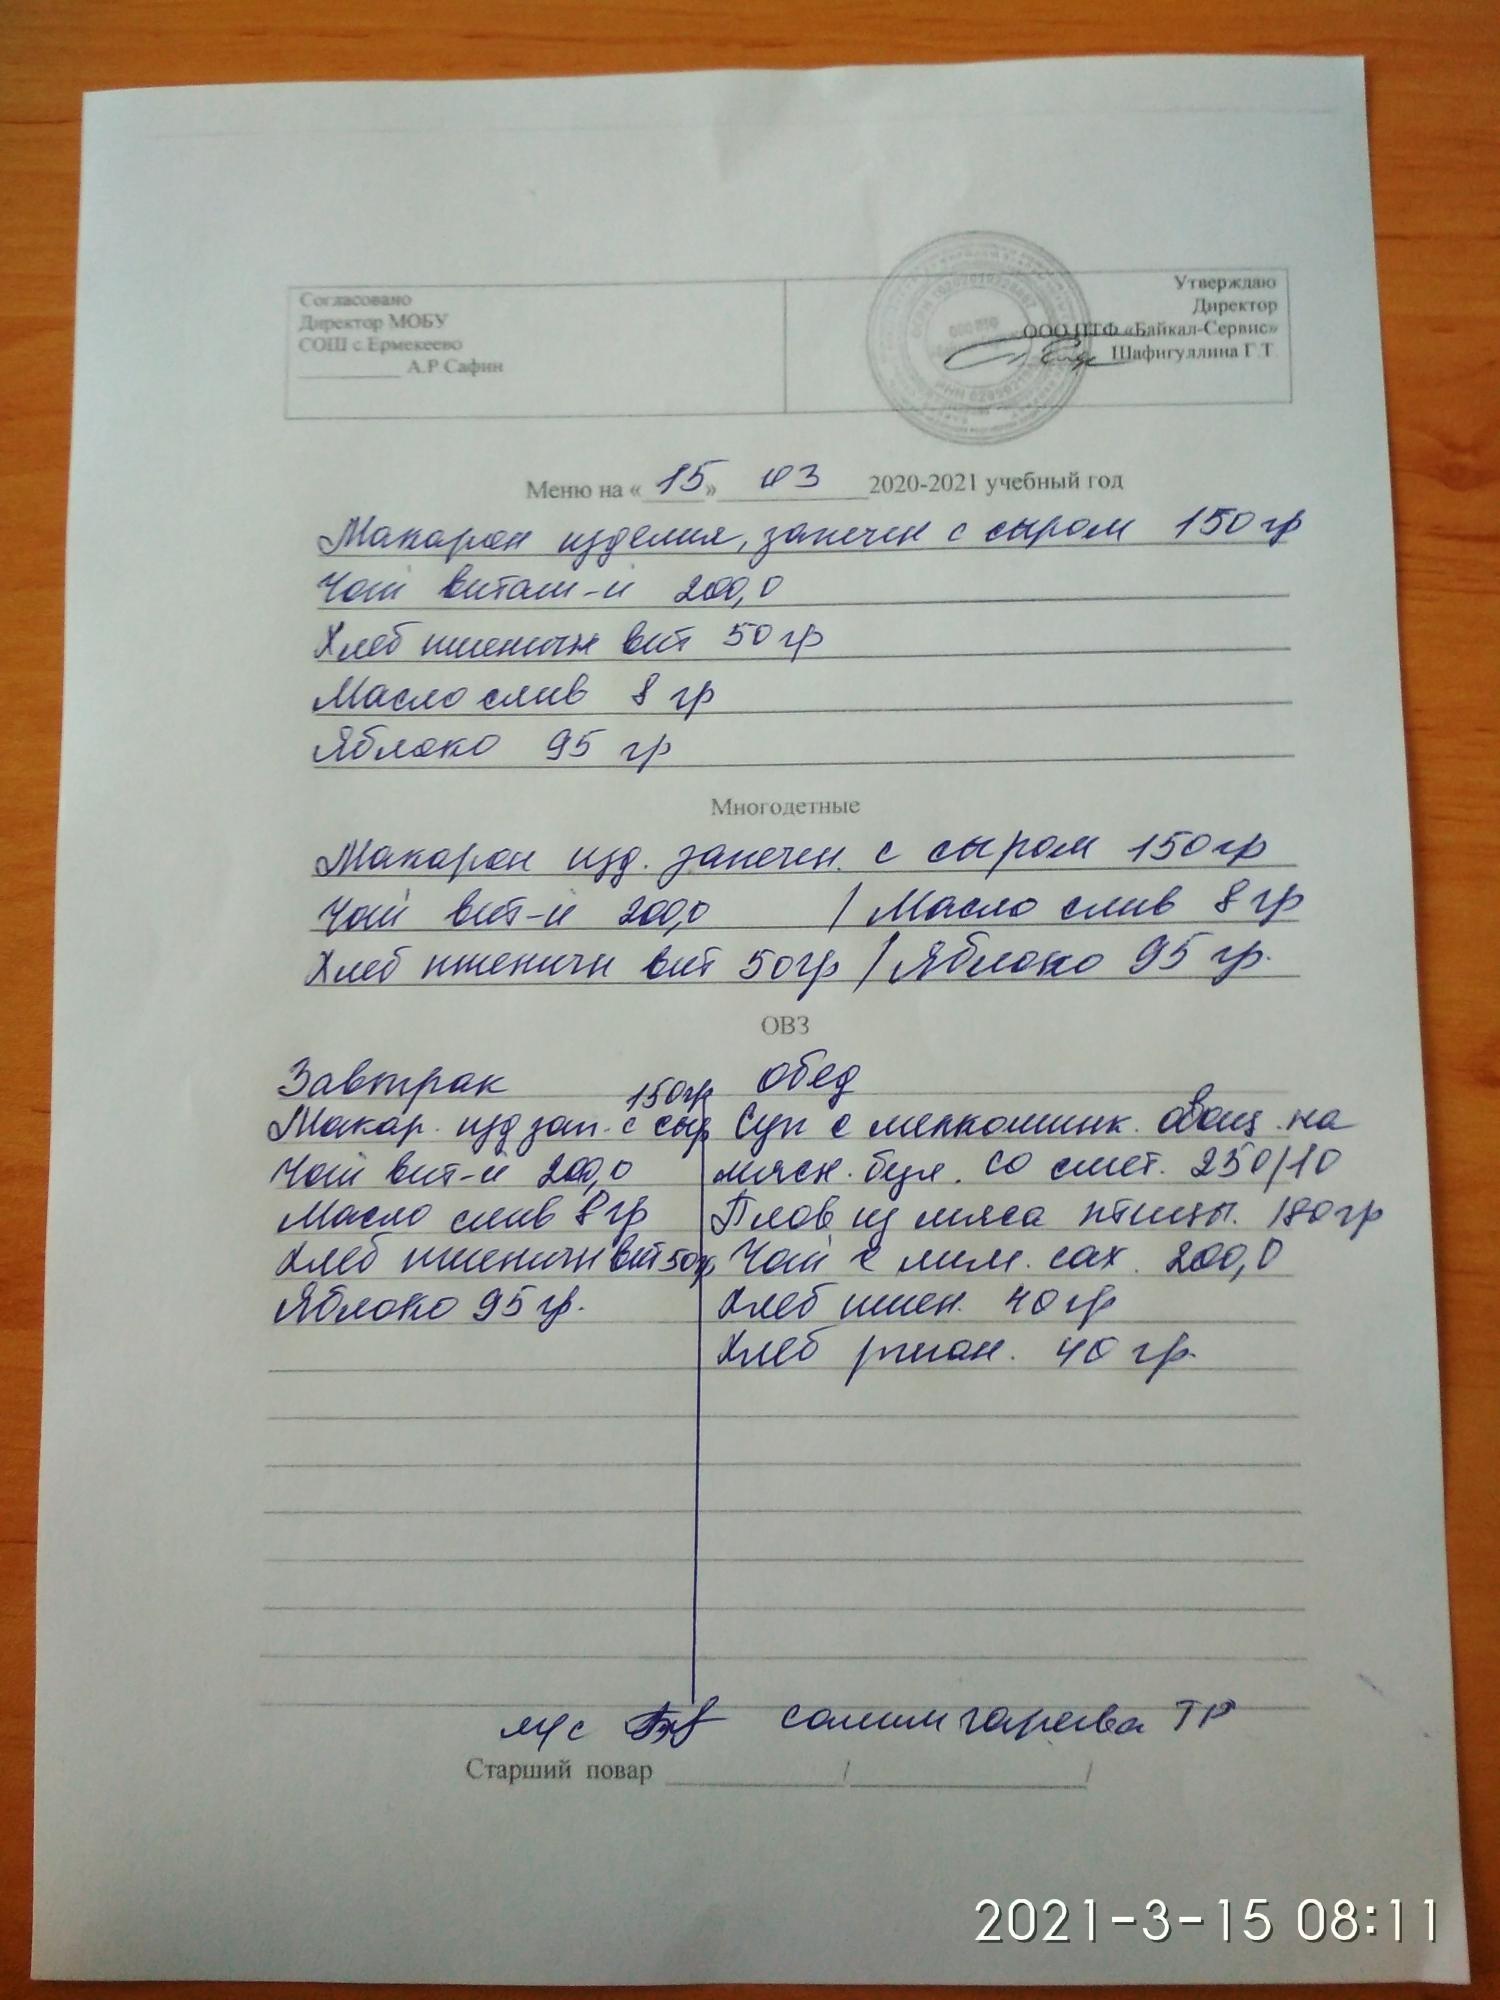 Согласовано
Директор МОБУ
СОШ с.Ермекеево
А.Р.Сафин
Утверждаю
Директор
ООО ПТФ «Байкал-Сервис»
Шафигуллина Г.Т.
Меню на «15» 03 2020-2021 учебный год
Макарон изделия, запечен с сыром 150 гр
Чай витам-й 200,0
Хлеб пшеничн вит 50 гр
Масло слив 8 гр
Яблоко 95 гр
Многодетные
Макарон изд. запечен. с сыром 150 гр
Чай вит-й 200,0 / Масло слив 8 гр
Хлеб пшеничн вит 50гр / Яблоко 95 гр.
ОВЗ
Завтрак
150гр
Макар. изд зап. с сыр
Чай вит-й 200,0
Масло слив 8 гр
Хлеб пшеничн вит 50гр
Яблоко 95 гр.
Обед
Суп с мелкошинк. овощ. на
мясн. бул. со смет. 250/10
Плов из мяса птицы. 180гр
Чай с лим. сах. 200,0
Хлеб пшен. 40 гр
Хлеб ржан. 40 гр.
Салимгареева ТР
Старший повар / /
2021-3-15 08:11